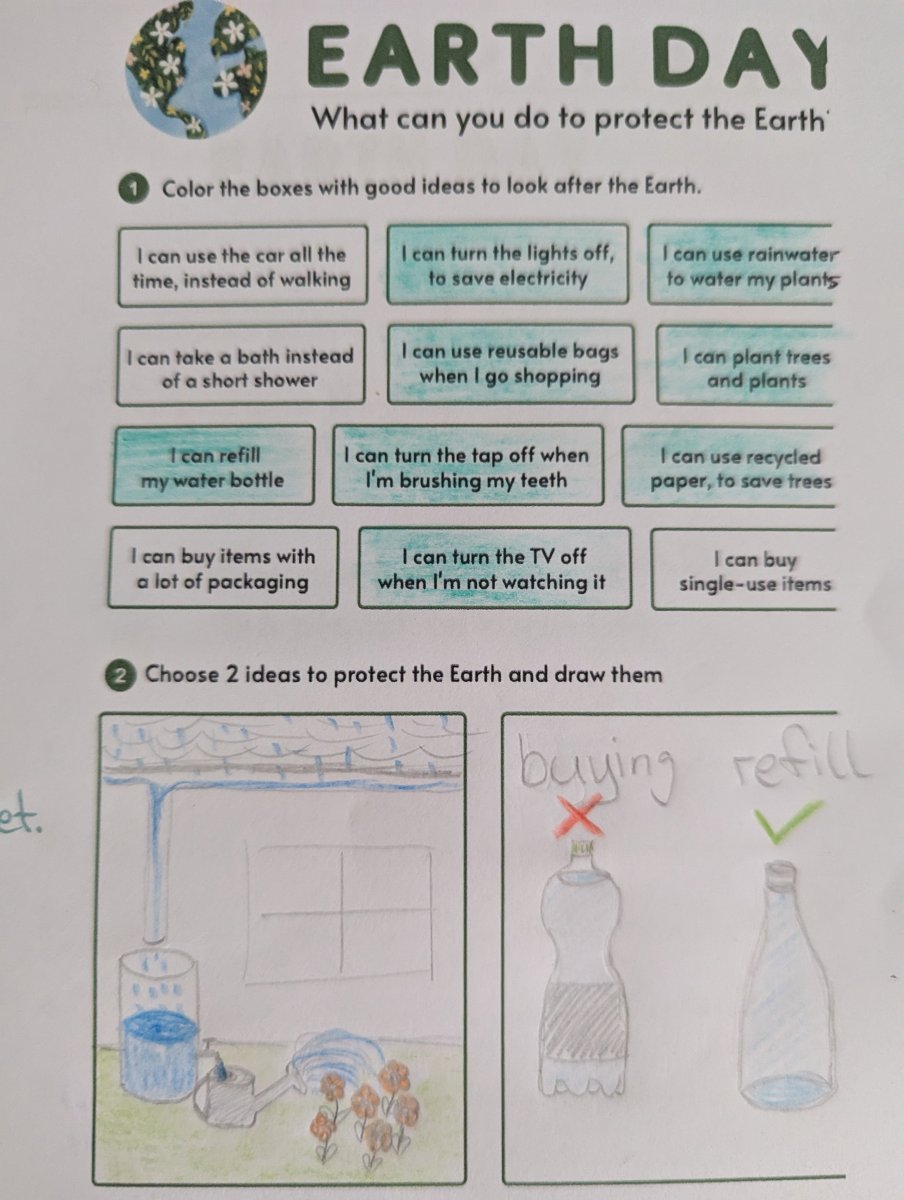 EARTH DAY
What can you do to protect the Earth
1 Color the boxes with good ideas to look after the Earth.
I can use the car all the
time, instead of walking
I can turn the lights off,
to save electricity
I can use rainwater
to water my plants
I can take a bath instead
of a short shower
I can use reusable bags
when I go shopping
I can plant trees
and plants
I can refill
my water bottle
I can turn the tap off when
I'm brushing my teeth
I can use recycled
paper, to save trees
I can buy items with
a lot of packaging
I can turn the TV off
when I'm not watching it
I can buy
single-use items
2 Choose 2 ideas to protect the Earth and draw them
buying
refill
et.